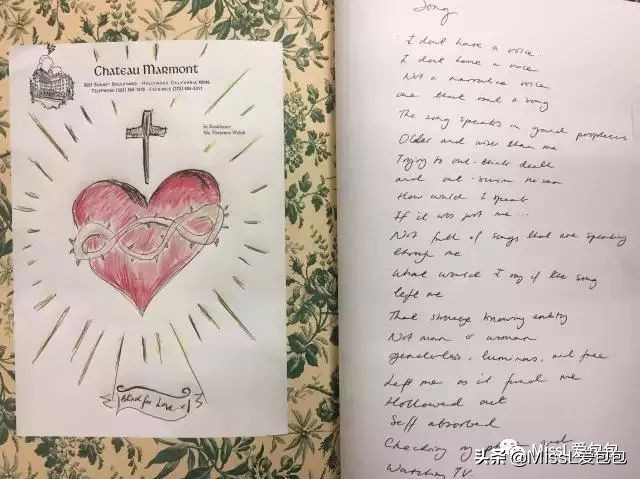 Chateau Marmont
8221 Sunset Boulevard · Hollywood California 90046
In Residence:
Ms. Florence Welch
Blind for Love
Song
I dont have a voice
I dont have a voice
Not a narrative voice
one that isnt a song
The song speaks in grand prophecies
Older and wiser than me
Trying to out-think death
and out-swim
How would I speak
If it was just me...
Not full of songs that are speaking
through me
What would I say if the song
left me
That strange knowing entity
Not man or woman
genderless, luminous, and free
Left me as it found me
Hollowed out
Self absorbed
Checking my
Watching TV.
头条 @MissL爱包包
MissL爱包包